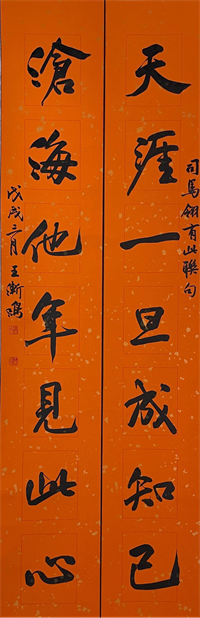 天涯一旦成知己
司馬翎有此聯句
滄海他年見此心
戊戌三月王漸鴻